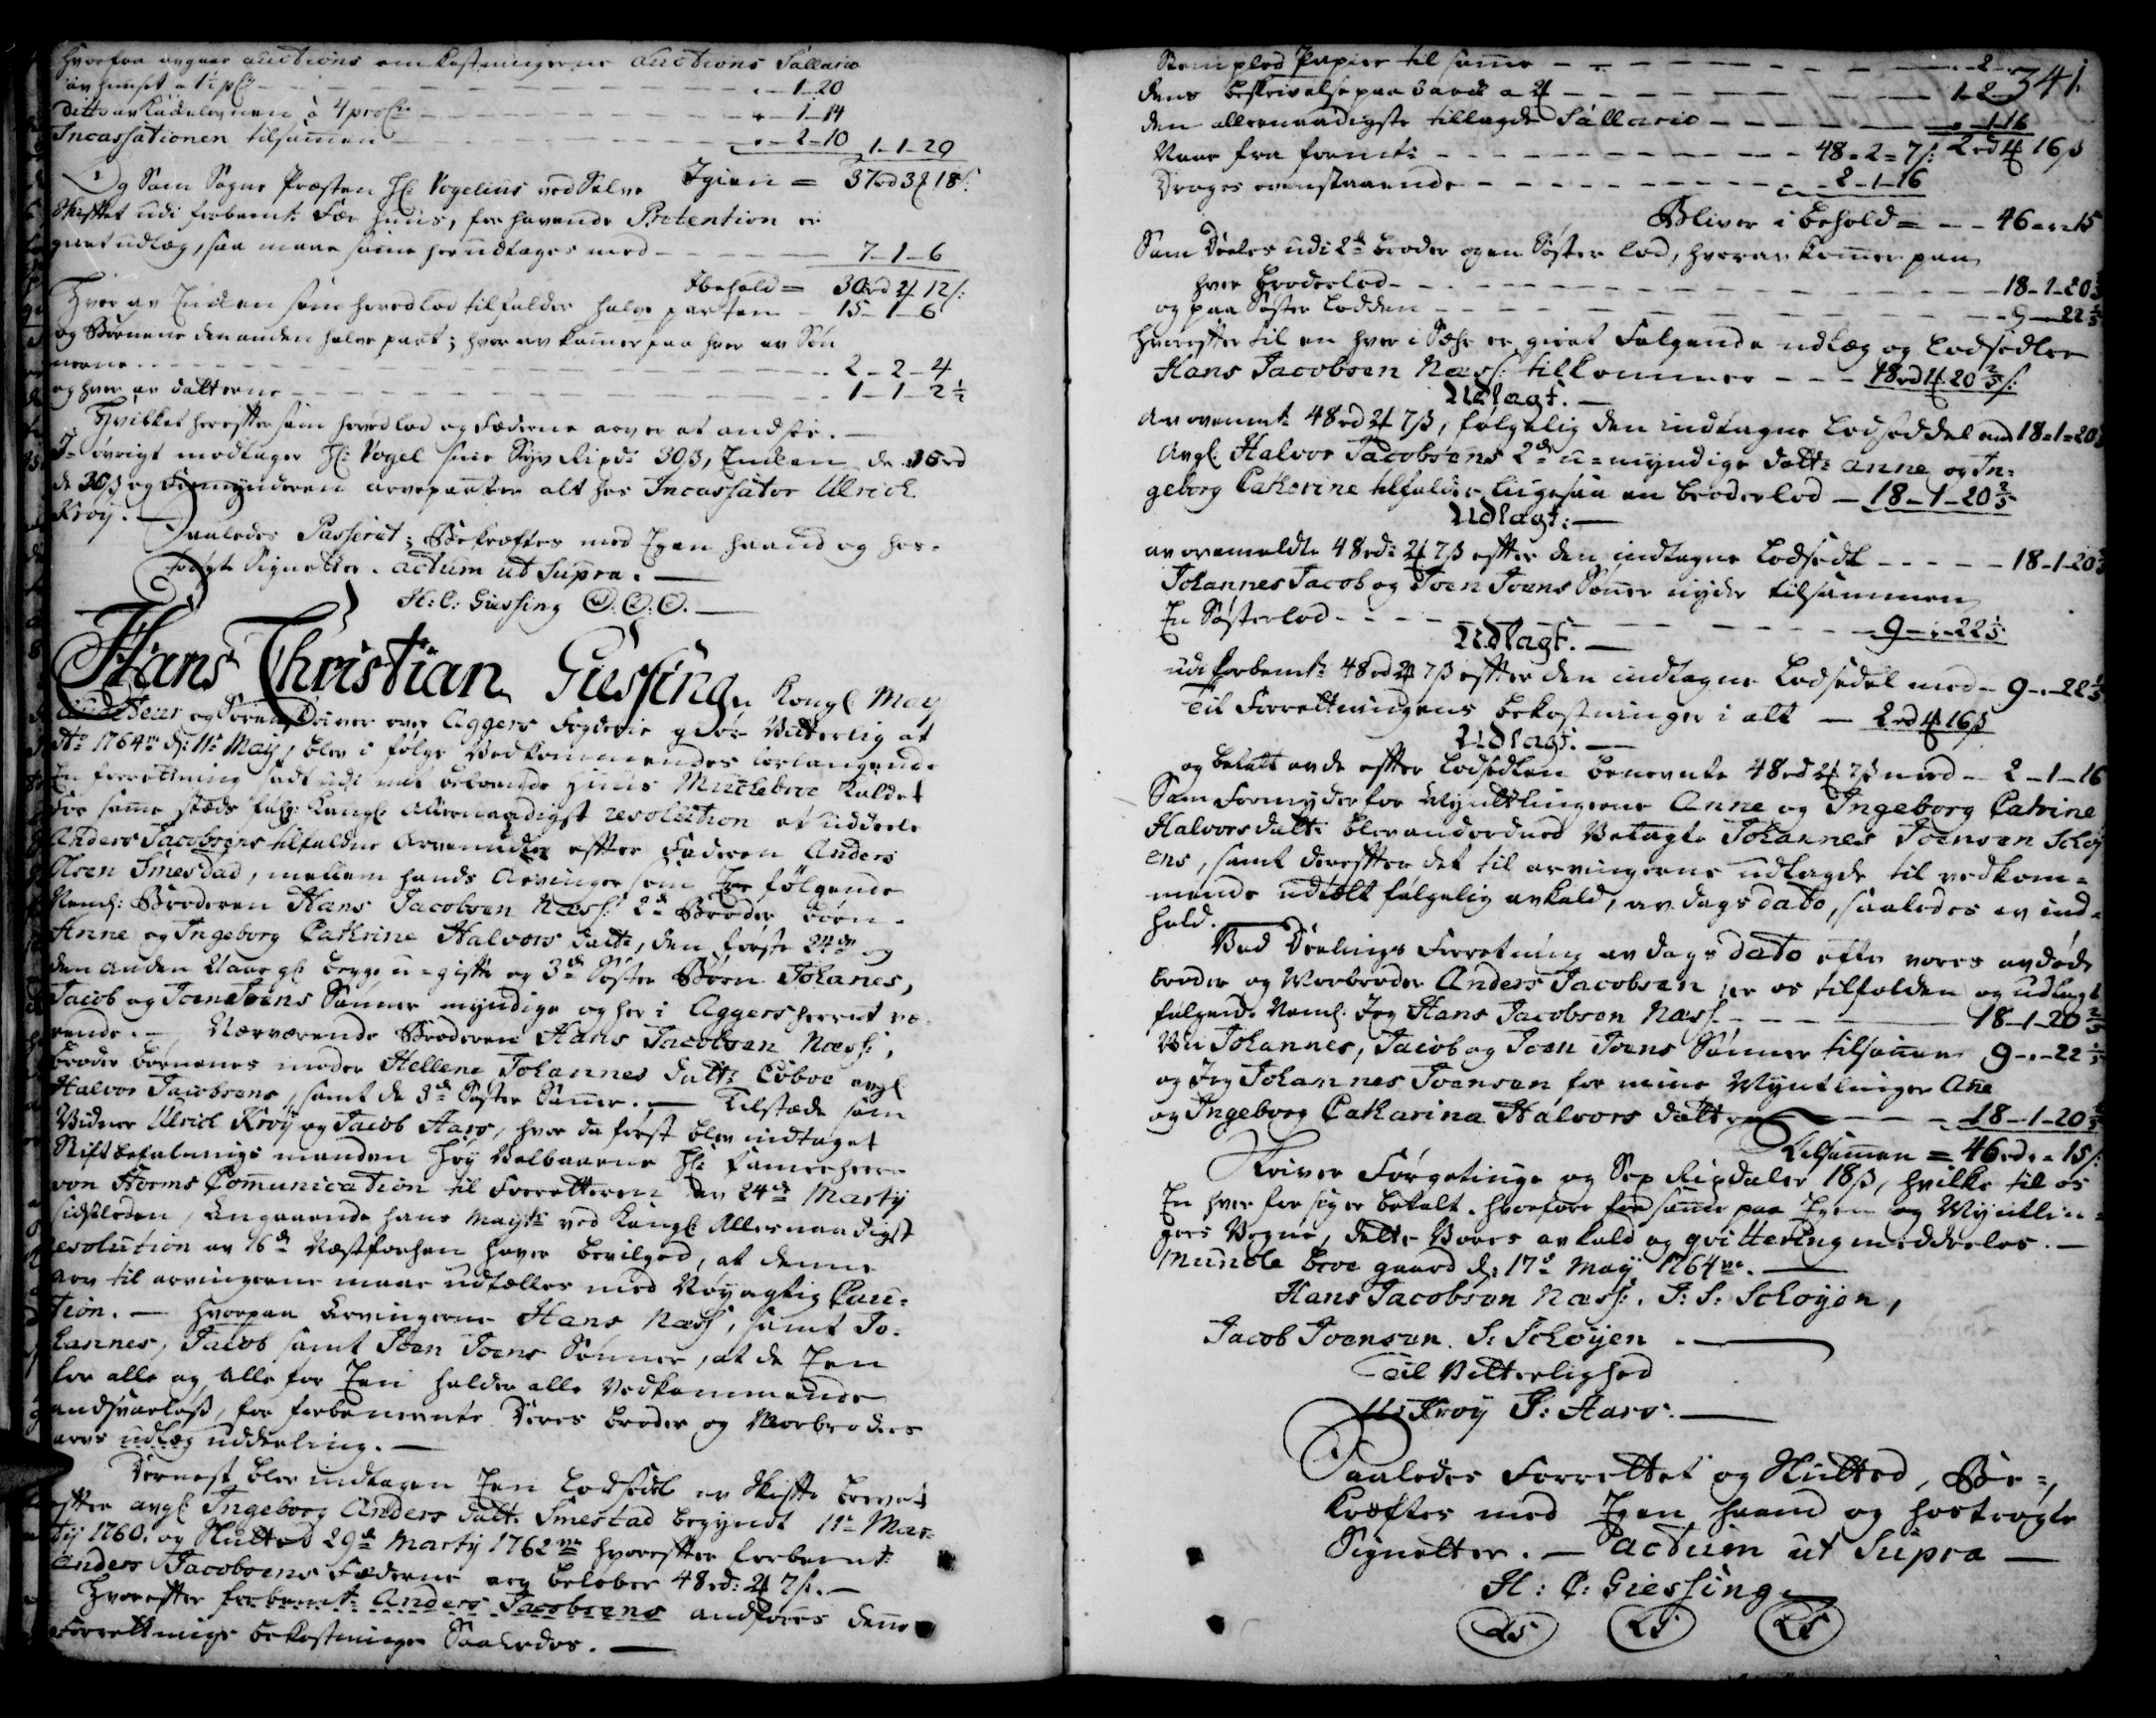 hvorfra avgaar auctions omkostningerne Auctions Sallario
av huuset a 1½ pCt - - 1 - 20
ditto av Løsørevenen à 4 proCto - - 1 - 14
Incassationen tilsamen - - 2 - 10 1 - 1 - 20
Igien = 37rd 3 18ß:
Og Som Sogne Præsten Hr: Vogelius ved Selve
Skiftet udi forbemte Søe huus, for havende Prætention er
givet udlæg, saa maae same her udtages med - 7 - 1 - 6
Ibehold = 30rd 2 12ß:
Hvor av Enken som hovedlod tilfalder halve parten - 15 - 1 - 6
og Børnene den anden halve part; hvor av kommer paa hver av Søn
nerne - - 2 - 2 - 4
og hver av døtterne - - 1 - 1 - 2½
Hvilket hereffter som hovedlod og Fæderne arv er at andsee. —
I øvrigt modtager Hr: Vogel sine Syv Ripdr 30ß, Enken de 15rd
de 30ß og Formynderen arveparter alt hos Incassator Ulrich
Krøy.
Saaledes Passeret; Bekræftes med Egen haand og hos-
føigte Signetter. Actum ut Supra. —
H: C: Giessing (L.S.) (L.S.) (L.S.) —
Hans Christian Giessing, Kongl May
og Sorenskriver over Aggers Fogderie giør Vitterlig at
Ao 1764ve d: 11te May, blev i følge Vedkommendes forlangende
En forretning holdt udi mit beboende Huus Munckebroe kaldet
for same stæds følg: Kongl Allernaadigst resolution at uddeele
Anders Jacobsens tilfaldne Arvemidler effter Faderen Anders
Olsen Smestad, mellem hands Arvinger som Ere følgende
Neml: Broderen Hans Jacobsen Næss: 2de Broder Børn
Anne og Ingeborg Cathrine Halvors datt:, den første 24de og
den anden 21 aar gl: begge u-gifte og 3de Søster Børn Johanes,
Jacob og Joen Joens Sønner myndige og her i Aggers herret væ-
rende. — Nærværende Broderen Hans Jacobsen Næss:,
broder børnenes moder Hellene Johannes datt: Løboe avgl
Halvor Jacobsens, samt de 3de Søster Sønner. — Tilstæde som
Vidner Ulrich Krøy og Jacob Aars, hvor da først blev indtaget
Stiftbefalnings manden Høy Velbaarne Hr: Kamerherre
von Storms Comunication til Forretteren den 24de Marty
sidstleden, Angaaende hans Mayts ved Kongl Allernaadigst
resolution av 16de Næstforhen haver bevilged, at denne
arv til arvingerne maae udtælles mod Nøyagtig Cau-
tion. — hvorpaa Arvingerne Hans Næss, samt Jo-
hannes, Jacob samt Joen Joens Sønner, at de Een
for alle og Alle for Een holder alle Vedkommende
andsvarløs, for forbenevnte Deres broder og Morbroders
arvs udlæg uddeeling. —
Dernest blev indtagen Een Lodsedel av Skifte brevet
effter avgl Ingeborg Anders datt. Smestad begyndt 11te Mar-
ty 1760. og Sluttet 29de Marty 1762ve hvoreffter forbemte
Anders Jacobsens Fæderne arv beløber 48rd: 2 7ß. —
Hvoreffter forbemte Anders Jacobsens andføres denne
Forrettnings bekostninger Saaledes. —
341.
Stemplet Papier til same - - 2 -
dens beskrivelse paa 3 ark a 2 - - 1 - 2 -
den allernaadigste tillagde Sallario - - 1 - 16
2rd 16ß
Naar fra foromte - - 48 = 2 = 7ß:
Drages ovenstaaende - - 2 - 1 - 16
Bliver i behold = - - 46 - " - 15
Som Deeles udi 2de broder og en Søster lod, hvorav kommer paa
hver broderlod - - 18 - 1 - 20⅖
og paa Søster Lodden - - 9 - " - 22⅕
Hvoreffter til en hver i Sæhr er givet Følgende udlæg og Lodsedler
Hans Jacobsen Næss: tilkommer - - 18rd 1 20⅖ß:
Udlagt. —
av ovenmte 48rd 2 7ß, følgelig den indtagne Lodseddel med 18 = 1 = 20⅖
Avgl: Halvor Jacobsens 2de u-myndige datt: anne og In-
geborg Catherine tilfalder ligesaa en broderlod — 18 - 1 - 20⅖
Udlagt: —
av ovenmeldte 48rd: 2 7ß effter den indtagne Lodsedl - - 18 - 1 - 20⅖
Johannes Jacob og Joen Joens Sønner nyder tilsammen
En Søsterlod - - 9 - " - 22⅕
Udlagt. —
udi forbemte 48rd 2 7ß effter den indtagne Lodsedel med - 9 - " - 22⅕
Til Forrettningens bekostninger i alt — 2rd 1 16ß
Udlagt. —
og betalt av de effter Lodsedlen benevnte 48rd 2 7ß med - 2 - 1 - 16
Som Formynder for Myndtlingerne Anne og Ingeborg Catrine
Halvors datt: blev andordned Betagte Johannes Joensen Schøy
ens, samt dereffter det til arvingerne udlagde til vedkom-
mende udtælt følgelig avkald, av dags dato, saaledes av ind-
hold.
Ved Deelings Forretning av dags dato effter vores avdøde
broder og Morbroder Anders Jacobsen, er os tilfalden og udlagt
følgende Neml: Jeg Hans Jacobsen Næss - - 18 - 1 - 20⅖
Vii Johannes, Jacob og Joen Joens Sønner tilsamen 9 - " - 22⅕
og Jeg Johannes Joensen for mine Myntlinger Ane
og Ingeborg Catharina Halvors døttre - - 18 - 1 - 20⅖
Tilsammen = 46rd " - 15ß:
Skriver Førgetinge og Sex Rigsdaler 18ß, hvilke til os
En hver for sig er betalt. hvorfore for same paa Egen og Myntlin-
gers Vegne, dette Vores avkald og qvittering meddeeles. —
Muncke broe gaard d: 17de May 1764ve. —
Hans Jacobsen Næss:. J: S: Schøyen,
Jacob Joensen. S: Schøyen. —
Til Vitterlighed
Ul: Krøy J: Aars. —
Saaledes Forrettet og Slutted, Be-
kræftes med Egen haand og hostrøgte
Signetter. — Actum ut Supra —
H: C: Giessing
LS LS LS